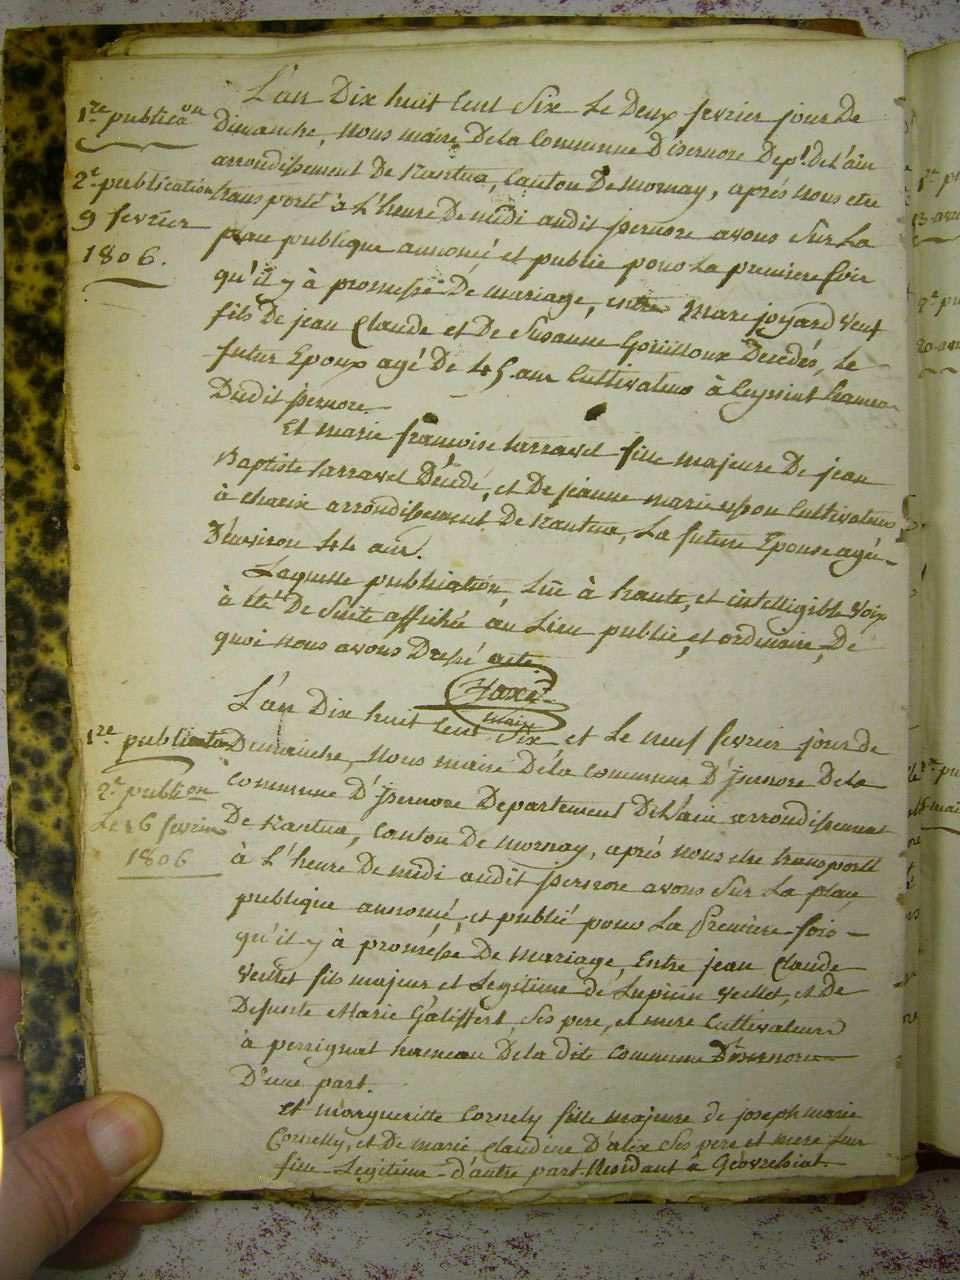 L'an Dix huit Cent Six Le Deux fevrier jour De
1.re publica.on
Dimanche, Nous maire De la Commune D'isernore Dep.t de L'ain
arrondissement De Nantua, Canton De mornay, aprés nous etre
2.e publication
9 fevrier
1806.
transporté à L'heure De midi audit isernore avons Sur La
place publique annoncé et publié pour La premiere fois
qu'il y à promesse De mariage, entre Marc joyard veuf
fils De jean Claude et De Susanne Decedés, Le
futur Epoux agé De 45 ans Cultivateur à Ceyssiat hameau
Dudit isernore
Et marie françoise Sarravet fille majeure De jean
Baptiste Sarravet Décédé, et De jeanne marie Cultivateur
à Charix arrondissement De Nantua, La future Epouse agé
D'environ 44 ans.
Laquelle publication, Lüe à haute, et intelligible voix
à été De Suite affiché au Lieu public, et ordinaire, De
quoi nous avons Dressé acte
maire
L'an Dix huit Cent Six et Le neuf fevrier jour de
1.re publication
Dimanche, Nous maire De la commune D'isernore De la
2.e publi.on
Le 16 fevrier
1806
commune D'isernore Departement De L'ain arrondissement
De Nantua, Canton de mornay, aprés nous etre transporté
à L'heure De midi audit isernore avons Sur La place
publique annoncé, et publié pour La Premiere fois
qu'il y à promesse De mariage, Entre jean Claude
veillet fils majeur et Legitime de Lupicin veillet, et De
Defunte Marie Ses pere, et mere Cultivateurs
à perrignat hameau De la dite commune D'isernore
D'une part.
et marguerite Cornely fille majeure de joseph marie
Cornelly, et De marie Claudine D'alex Ses pere et mere Leur
fille Legitime D'autre part Residant à Géovreissiat